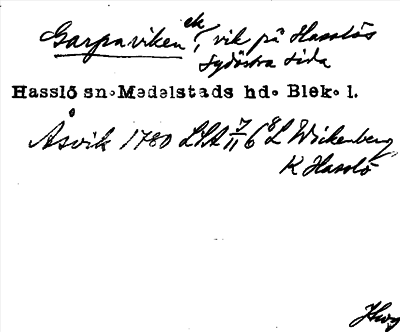 Garpaviken ek, vik på Hasslös
sydöstra sida
Hasslö sn. Medelstads hd. Blek. l.
Åsvik 1780 LSA 7/11 6 8 L Wickenberg
K Hasslö